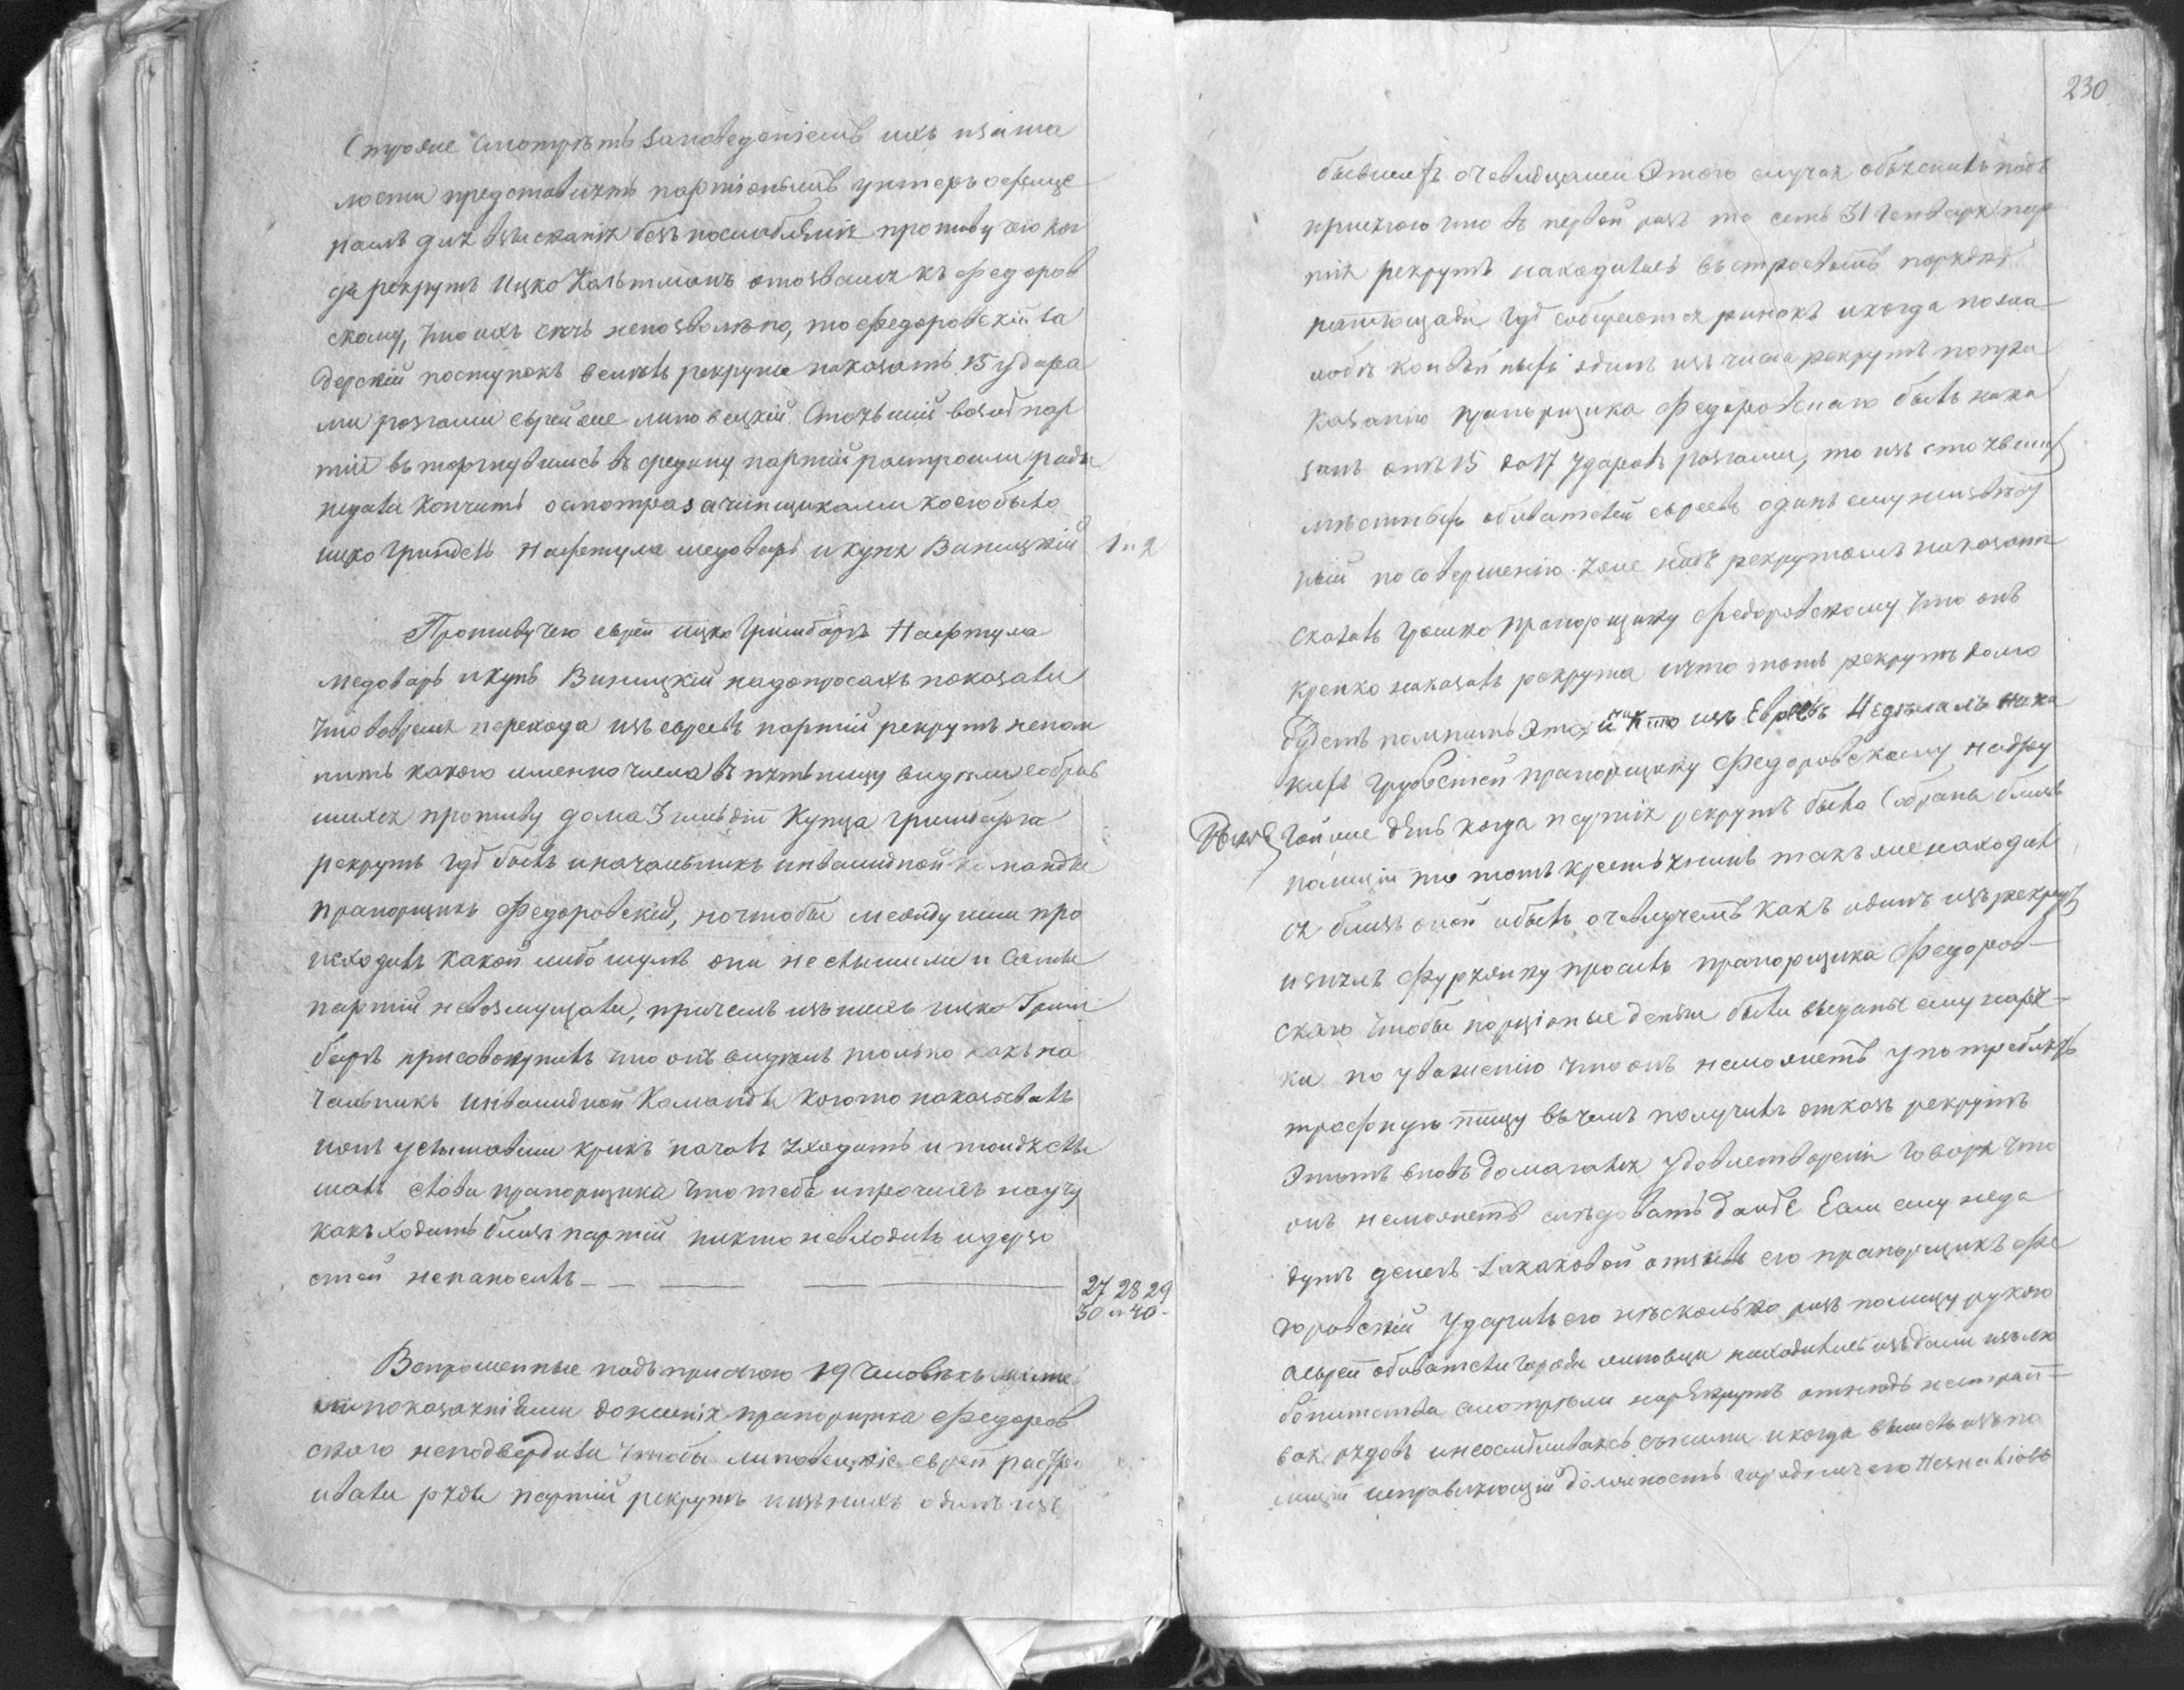 Строже смотреть за поведением ихъ и за ма
лости представлять партіоннымъ унтеръ офице
рамъ для взысканія безъ послабленія противу чего ког
да рекрутъ Ицко Кальтманъ отозвался къ Федоров
скому, что ихъ сечь непозволено, то Федоровскій за
дерскій поступокъ велелъ рекрута наказать 15 удара
ми розгами еврей же липовецкій стоявшій возлѣ пар
тіи вторгнувшись в средину партіи разстроили ряды
недали кончить осмотра зачинщиками коего было
ицко Гринберъ Нафтула медоваръ и кунъ Виницкій
1 и 2
Противу чего евреи ицко Гринбаргъ Нафтула
медоваръ и кунъ Виницкій на допросахъ показали
что вовремя перехода изъ евреевъ партіи рекрутъ непом
нитъ какого именно числа в пятницу видели собрав
шихся противу дома 3 гильдіи Купца Гринбарга
рекрутъ гдѣ былъ и начальникъ инвалидной команды
прапорщикъ Федоровскій, но чтобы между ими про
исходилъ какой либо шумъ они неслышили и Сами
партіи невозмущали, причемъ изъ нихъ ицко Грин
баргъ присовокупилъ что онъ виделъ только какъ на
чальникъ инвалидной Команды когото наказывалъ
нонъ услышавши крикъ началъ уходить и тандѣ слы
шалъ слова прапорщика что тебѣ и прочихъ научу
какъ ходить близъ партіи никто невходилъ и дерзо
стей ненаносилъ
27 28 29
30 и 40
Вспрошенные подъ присягою 19 человѣкъ
показаніями донесенія прапорщика Федоров
скаго неподвердили чтобы липовецкіе евреи разстро
ивали ряды партіи рекрутъ изъ нихъ одинъ изъ
230
бывшихъ очевидцами Этого случая объяснилъ подъ
присягою что в первой разъ то есть 31 генваря пар
тія рекрутъ находилась выстроеномъ порядкѣ
на площади гдѣ собирается ринокъ и когда пожа
лобѣ конвойныхъ одинъ изъ числа рекрутъ по прика
казанію прапорщика Федоровскаго былъ нака
занъ отъ 15 до 17 ударовъ розгами, то изъ стоявшихъ
мѣстныхъ обывателей евреевъ одинъ ему неизвѣст
ный по совершенію уже надъ рекрутомъ наказанія
сказалъ громко прапорщику Федоровскому что онъ
крепко наказалъ рекрута и что тотъ рекрутъ долго
будетъ помнить это, и никто изъ Евреевъ Неделалъ ника
кихъ грубостей прапорщику Федоровскому надру
гой же день когда партія рекрутъ была Собрана близь
полиціи то тотъ крестьянинъ такъ же находил
ся близь оной и былъ очевидцемъ какъ одинъ изъ рекрутъ
взявъ Фуражку просилъ прапорщика Федоров
скаго чтобы порціоные деньги были выданы ему на ру
ки по уважению что онъ неможетъ употреблять
трафную пищу в чемъ получилъ отказъ рекрутъ
Этотъ вновь домагался удовлетворенія говоря что
онъ неможетъ слѣдовать далѣе Если ему неда
дутъ денегъ заковой отзывъ его прапорщикъ Фе
доровскій ударилъ его нѣсколько разъ по лицу рукою
а евреи обыватели города липовца находились издали изъ лю
бопитства смотрѣли на рекрутъ отнюдь нестраи
вая рядовъ и несмешиваясь съ ними и когда вышелъ изъ по
лиціи исправляющій должность городничего